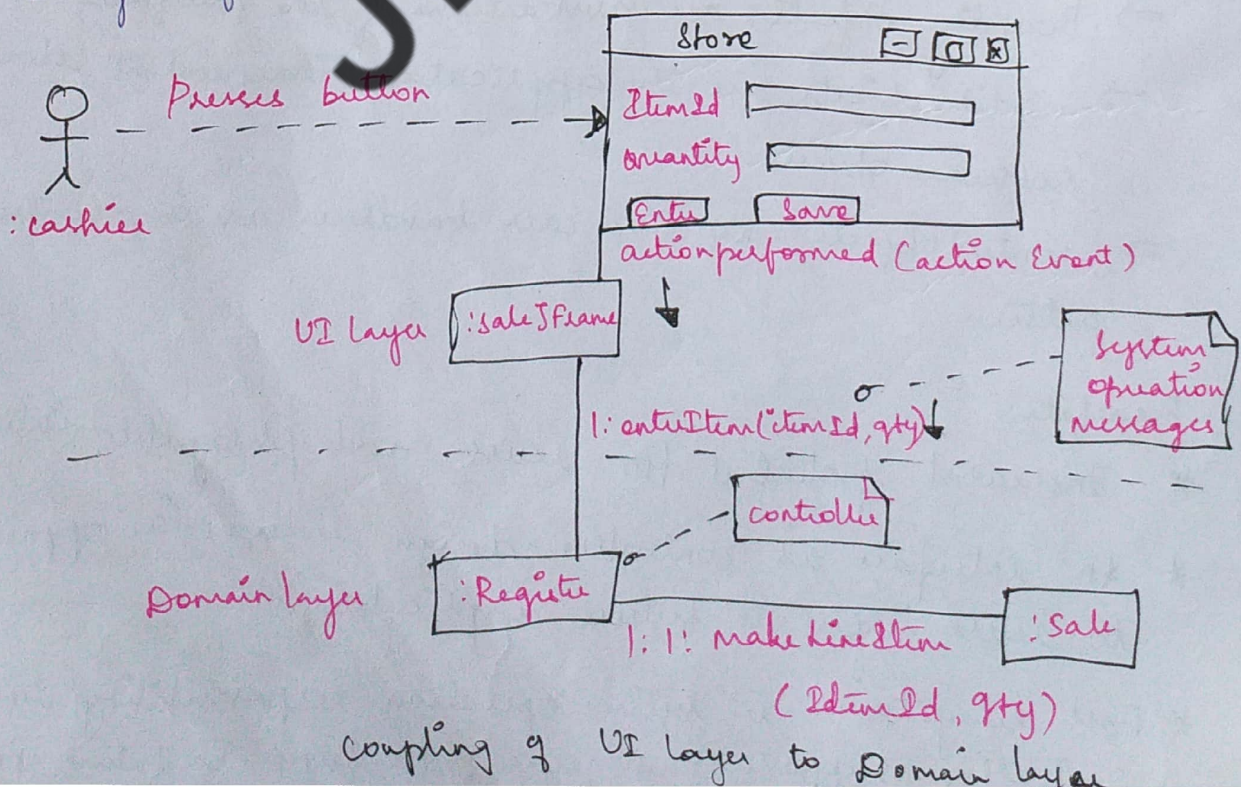 Store
Presses button
ItemId
quantity
Enter
Save
:cashier
actionperformed (action Event)
UI Layer
:saleJFrame
System
operation
messages
1: enterItem(itemId, qty)
controller
Domain layer
:Register
:Sale
1:1: MakeLineItem
(ItemId, qty)
coupling of UI Layer to Domain layer